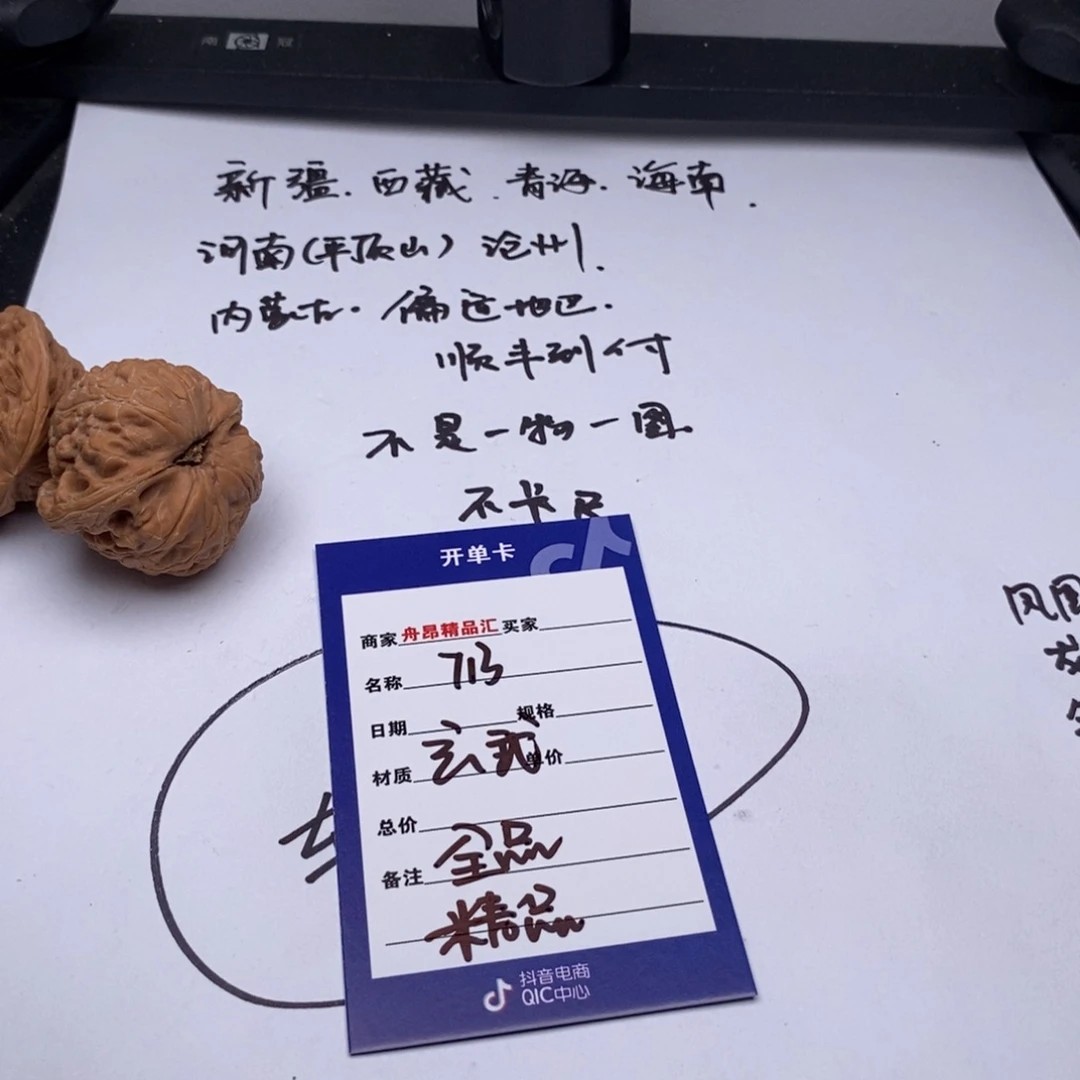 南 冠
新疆.西藏.青海.海南.
河南(平顶山)沧州.
内蒙古.偏远地区.
顺丰到付
不是一物一图.
不卡尺
凤凰
开单卡
商家 舟昂精品汇 买家
名称 713
日期 规格
材质 玄武 单价
总价
备注 全品
精品
抖音电商
QIC中心